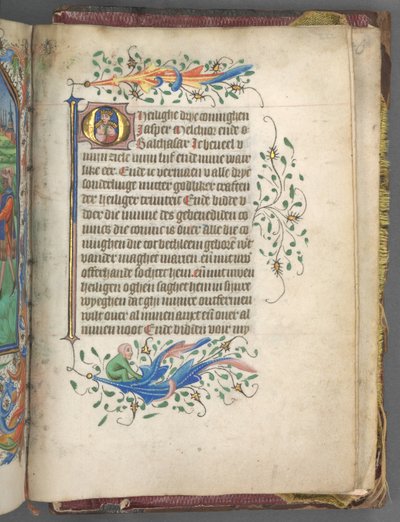 O heilighe drye coninghen
Jasper Melchior ende
Balthasar Ic beveel v
mijn ziele mijn lijf ende mijne waer
like eer Ende ic vermaen v alle drye
sonderlinge mitter godliker craften
der heiliger triniteit Ende bidde v
doer die minne des gebenediden co
nincs die coninc is over alle die co
ninghen die tot bethleem geboren
vander maghet marien
offerhande
heiligen oghen saghet hem in sijnre
wyeghen dat ghi mijnre ontfermen
wilt over al minen anxt ende over al
minen noot Ende bidden voir my